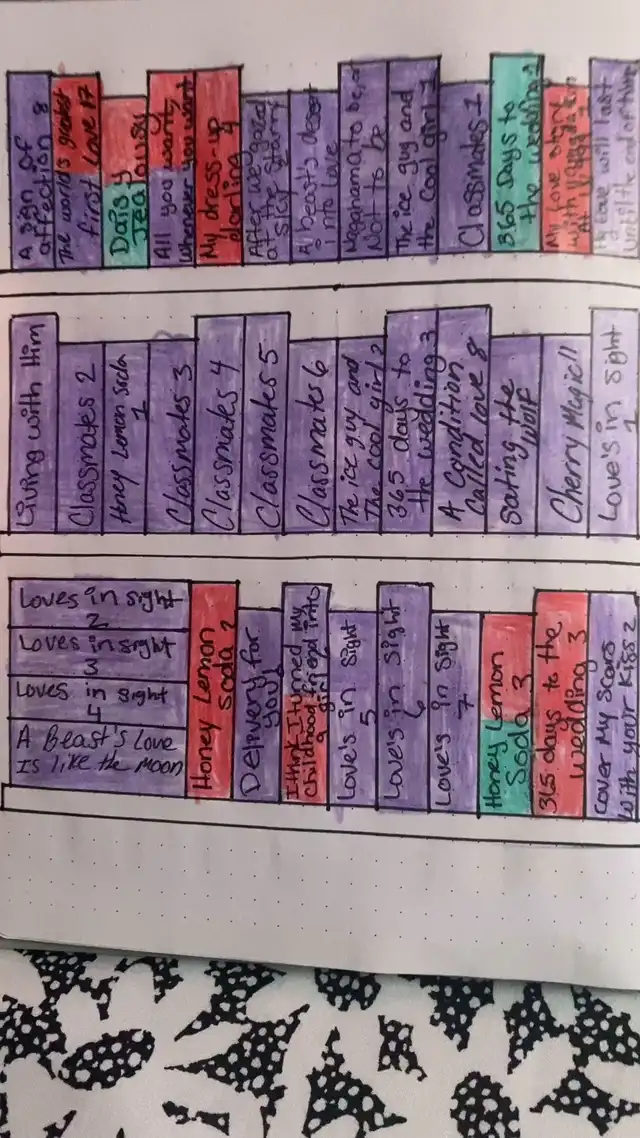 A sign of
affection 8
The world's greatest
first Love 17
Daisy
Jealousy
All you want,
Whenever you want
My dress-up
darling 4
After we gazed
at the starry
sky
A beast's descent
into love
Megahama to be, or
Not to be
The ice guy and
the Cool girl 1
Classmates 1
365 Days to
the wedding
My love story
with
At
love will last
until the end of time
Living with Him
Classmates 2
Honey Lemon Soda
1
Classmates 3
Classmates 4
Classmates 5
Classmates 6
The ice guy and
The cool girl 2
365 days to
the wedding 3
A Condition
Called love 8
Sating the
Wolf
Cherry Magic 11
Love's in sight
1
Loves in sight
2
Loves in sight
3
Loves in sight
4
A Beast's Love
Is like the Moon
Honey Lemon
Soda 2
Delivery for
you!
I think I turned My
childhood friend into
a girl
Love's in sight
5
Love's in sight
6
Love's in sight
7
Honey Lemon
Soda 3
365 days to the
wedding 3
Cover My Scars
With your Kiss 2